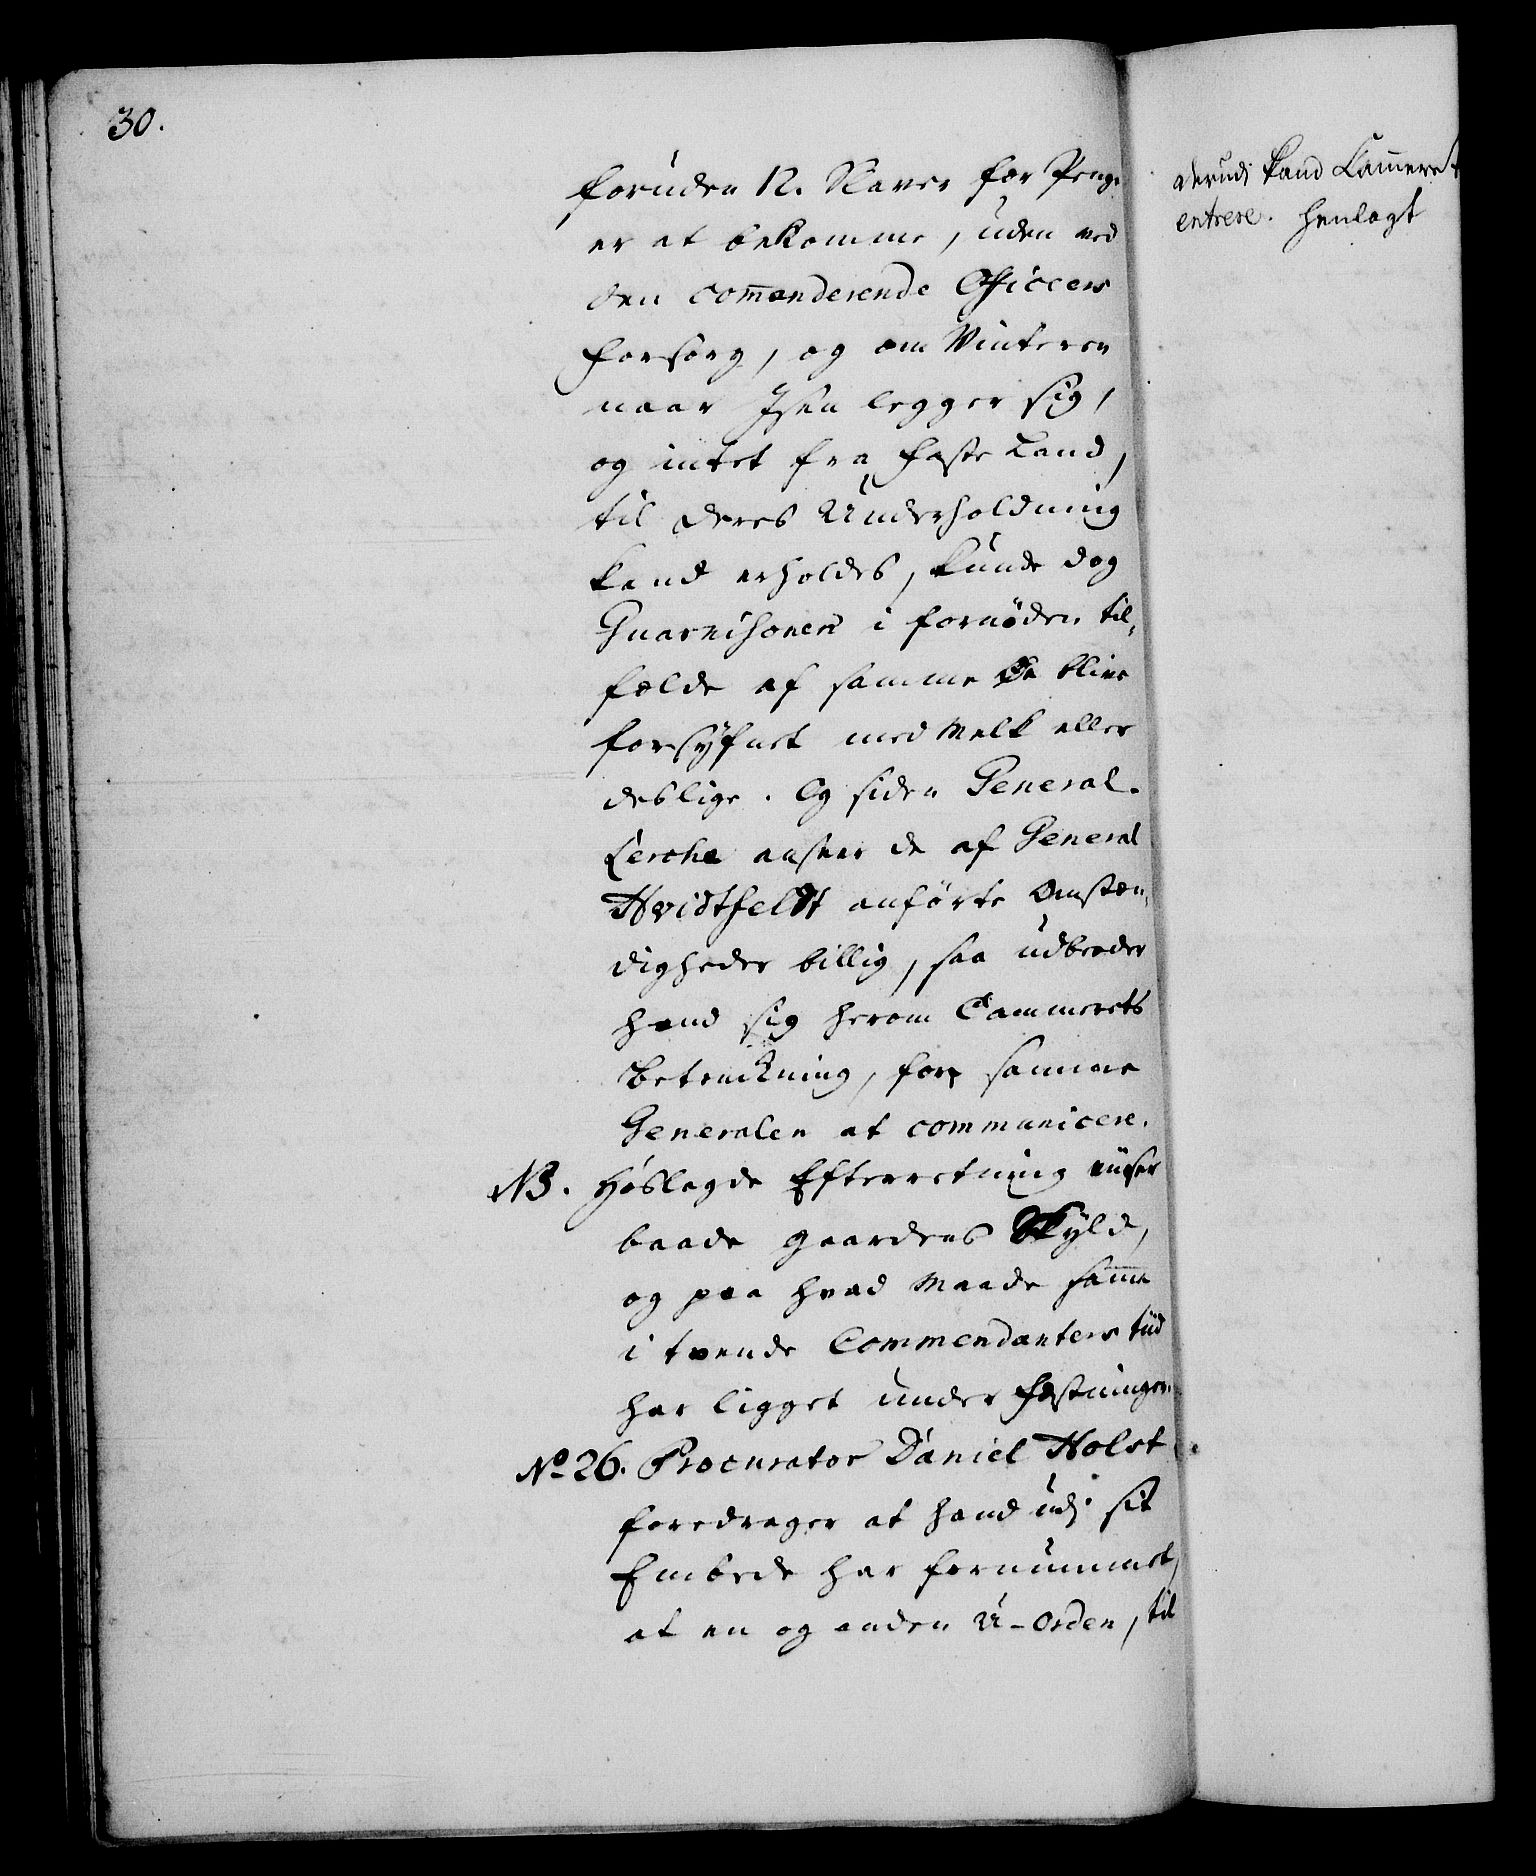 30.
foruden 12. Slaver for Penge
er at bekomme, uden ved
den com̅anderende Officers
forsorg, og om Vinteren
naar Isen legger sig,
og intet fra faste Land,
til deres Underholdning
kand erholdes, kunde dog
Guarnisonen i fornøden til-
fælde af samme Øe blive
forsÿfnet med Melk eller
deslige. Og siden General-
Lerche anseer de af General
Hvidtfeldt anførte Omstæn-
digheder billig, saa udbeder
hand sig herom Cammerets
betænkning, for samme
Generalen at communicere.
NB. Hoslagde Efterretning viiser
baade gaardens Skÿld,
og paa hvad Maade sam̅e
i tvende Commendanters tiid
har ligget under Fæstningen.
No 26. Procurator Daniel Holst
foredrager at hand udj sit
Embede har fornummet,
at en og anden U-orden, til
derudj kand Cam̅eret
entrere. henlagt